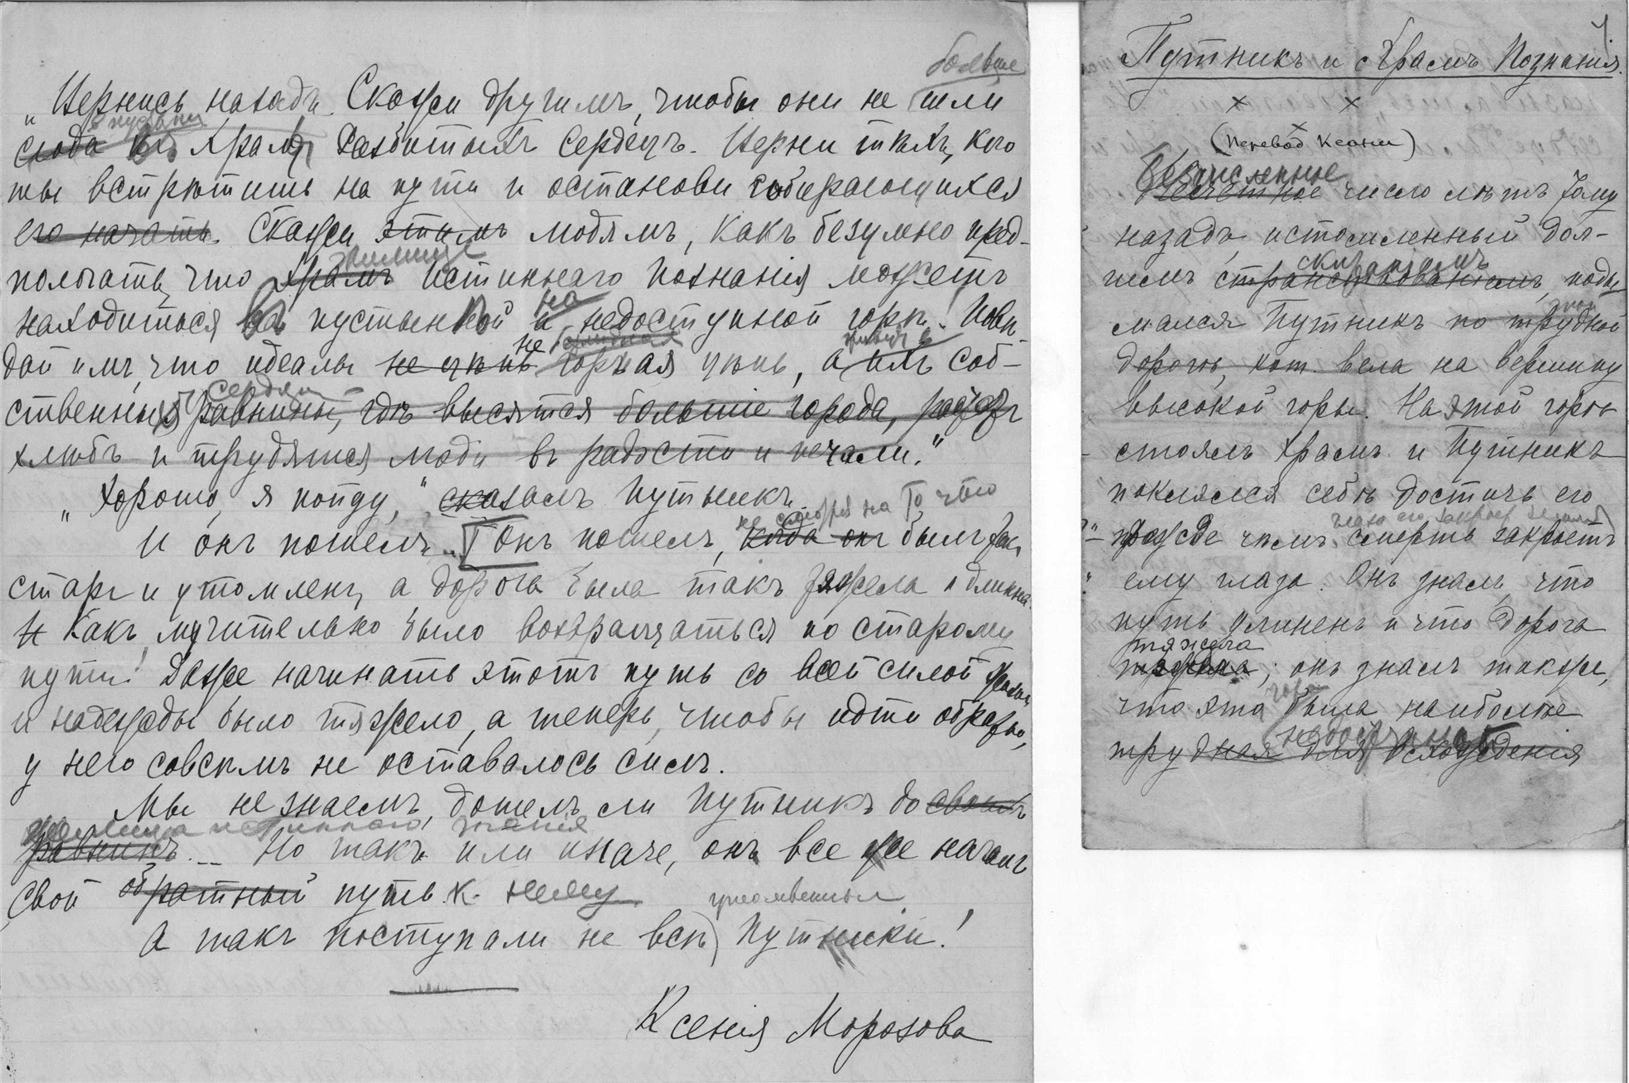 больше
„Вернись назадъ. Скажи другимъ, чтобы они не шли
въ пустыни
сюда въ Храмъ Разбитыхъ Сердецъ. Верни тѣхъ, кого
ты встрѣтишь на пути и останови собирающихся
его начать. Скажи этимъ людямъ, какъ безумно пред-
жилище
пологать, что Храмъ Истиннаго Познанія можетъ
на
находиться въ пустынной и недоступной горѣ. Повѣ-
не
дай имъ, что идеалы не цѣнь горная цѣнь, а имъ соб-
сердца
ственныя равнины, гдѣ высятся большіе города,
хлѣбъ и трудятся люди въ радости и печали."
„Хорошо, я пойду," сказалъ Путникъ
не смотря на то, что
И онъ пошелъ... Онъ пошелъ, когда онъ былъ такъ
старъ и утомленъ, а дорога была такъ тяжела и длинна.
И какъ мучительно было возвращаться по старому
пути! Даже начинать этотъ путь со всей силой
и надежды было тяжело, а теперь, чтобы идти обратно,
у него совсѣмъ не оставалось силъ.
Мы не знаемъ, дошелъ ли Путникъ до своихъ
жилища истиннаго знанія
равнинъ... Но такъ или иначе, онъ все же началъ
свой обратный путь к нему
А такъ поступали не всѣ Путники!
Ксенія Морозова
Путникъ и Храмъ Познанія.
(Перевод Ксении)
Безчисленное
Несчетное число лѣтъ тому
назадъ, истомленный дол-
скитаніемъ
гимъ странствованіемъ, поды-
этой
мался Путникъ по трудной
дорогѣ, кот. вела на вершину
высокой горы. На этой горѣ
стоялъ Храмъ и Путникъ
поклялся себѣ достичь его
глаза его закроет земля
прежде чѣмъ смерть закроетъ
ему глаза. Онъ зналъ, что
путь длиненъ и что дорога
тяжела
тяжела; онъ зналъ также,
гора
что эта была наиболѣе
трудная для восхожденія